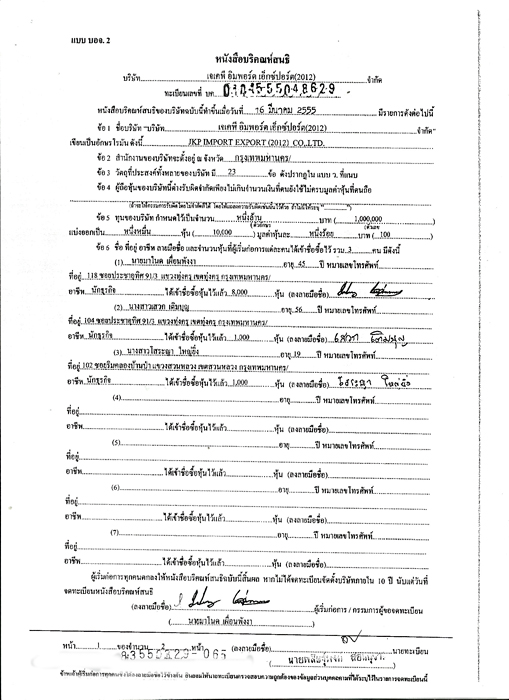 แบบ บอจ. 2
หนังสือบริคณห์สนธิ
บริษัท เจเคพี อิมพอร์ต เอ็กซ์ปอร์ต(2012) จำกัด
ทะเบียนเลขที่ บค. 0105555048629
หนังสือบริคณห์สนธิของบริษัทฉบับนี้ทำขึ้นเมื่อวันที่ 16 มีนาคม 2555 มีรายการดังต่อไปนี้
ข้อ 1 ชื่อบริษัท "บริษัท เจเคพี อิมพอร์ต เอ็กซ์ปอร์ต(2012) จำกัด"
เขียนเป็นอักษรโรมัน ดังนี้ JKP IMPORT EXPORT (2012) CO.,LTD.
ข้อ 2 สำนักงานของบริษัทจะตั้งอยู่ ณ จังหวัด กรุงเทพมหานคร/
ข้อ 3 วัตถุที่ประสงค์ทั้งหลายของบริษัท มี 23 ข้อ ดังปรากฏใน แบบ ว. ที่แนบ
ข้อ 4 ผู้ถือหุ้นของบริษัทนี้ต่างรับผิดจำกัดเพียงไม่เกินจำนวนเงินที่ตนยังใช้ไม่ครบมูลค่าหุ้นที่ตนถือ
ข้อ 5 ทุนของบริษัท กำหนดไว้เป็นจำนวน หนึ่งล้าน บาท ( 1,000,000 )
(ตัวอักษร) (ตัวเลข)
แบ่งออกเป็น หนึ่งหมื่น หุ้น ( 10,000 ) มูลค่าหุ้นละ หนึ่งร้อย บาท ( 100 )
ข้อ 6 ชื่อ ที่อยู่ อาชีพ ลายมือชื่อ และจำนวนหุ้นที่ผู้เริ่มก่อการแต่ละคนได้เข้าชื่อซื้อไว้ รวม 3 คน มีดังนี้
(1) นายมาโนค เผื่อนพังงา อายุ 45 ปี หมายเลขโทรศัพท์
ที่อยู่ 118 ซอยประชาอุทิศ 91/3 แขวงทุ่งครุ เขตทุ่งครุ กรุงเทพมหานคร/
อาชีพ นักธุรกิจ ได้เข้าชื่อซื้อหุ้นไว้แล้ว 8,000 หุ้น (ลงลายมือชื่อ)
(2) นางสาวสวก เติมบุญ อายุ 56 ปี หมายเลขโทรศัพท์
ที่อยู่ 104 ซอยประชาอุทิศ 91/3 แขวงทุ่งครุ เขตทุ่งครุ กรุงเทพมหานคร/
อาชีพ นักธุรกิจ ได้เข้าชื่อซื้อหุ้นไว้แล้ว 1,000 หุ้น (ลงลายมือชื่อ)
(3) นางสาวโสระญา ใหญ่ยิ่ง อายุ 19 ปี หมายเลขโทรศัพท์
ที่อยู่ 102 ซอยริมคลองบ้านป่า แขวงสวนหลวง เขตสวนหลวง กรุงเทพมหานคร/
อาชีพ นักธุรกิจ ได้เข้าชื่อซื้อหุ้นไว้แล้ว 1,000 หุ้น (ลงลายมือชื่อ)
(4) อายุ ปี หมายเลขโทรศัพท์
ที่อยู่
อาชีพ ได้เข้าชื่อซื้อหุ้นไว้แล้ว หุ้น (ลงลายมือชื่อ)
(5) อายุ ปี หมายเลขโทรศัพท์
ที่อยู่
อาชีพ ได้เข้าชื่อซื้อหุ้นไว้แล้ว หุ้น (ลงลายมือชื่อ)
(6) อายุ ปี หมายเลขโทรศัพท์
ที่อยู่
อาชีพ ได้เข้าชื่อซื้อหุ้นไว้แล้ว หุ้น (ลงลายมือชื่อ)
(7) อายุ ปี หมายเลขโทรศัพท์
ที่อยู่
อาชีพ ได้เข้าชื่อซื้อหุ้นไว้แล้ว หุ้น (ลงลายมือชื่อ)
ผู้เริ่มก่อการทุกคนตกลงให้หนังสือบริคณห์สนธิฉบับนี้สิ้นผล หากไม่ได้จดทะเบียนจัดตั้งบริษัทภายใน 10 ปี นับแต่วันที่
จดทะเบียนหนังสือบริคณห์สนธิ
(ลงลายมือชื่อ) ผู้เริ่มก่อการ / กรรมการผู้ขอจดทะเบียน
( นายมาโนค เผื่อนพังงา )
หน้า 1 ของจำนวน 2 หน้า (ลงลายมือชื่อ) นายทะเบียน